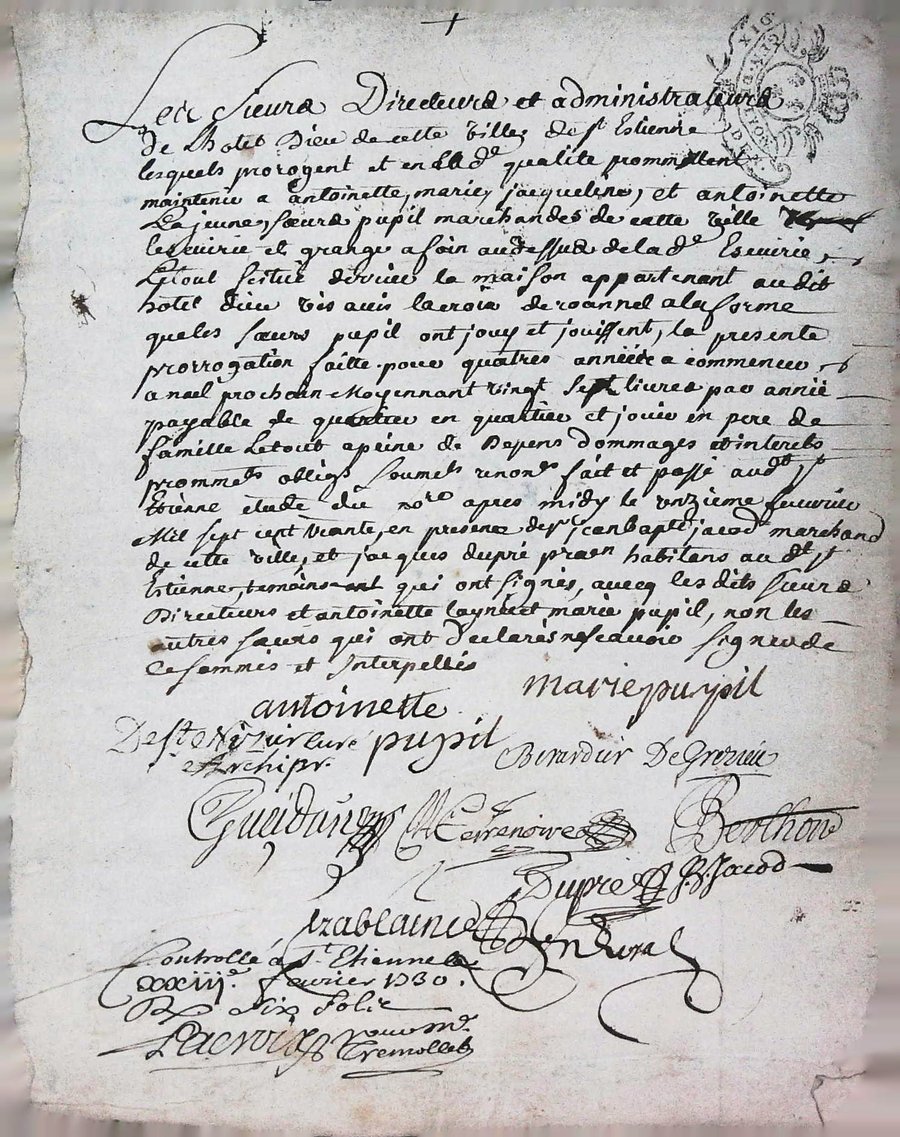 Les Sieurs Directeurs et administrateurs
de Lhotel Dieu de cette ville de st Estienne
lesquels prorogent et en lad.e qualité promettent
maintenir a antoinette, marie, jacqueline, et antoinette
La jeune, sœurs pupil marchandes de cette ville
lescuirie et grange a foin audessus de lad.e Escuirie,
Letout scitué derrier la maison appartenant audit
hotel dieu vis avis lacroix de roannel a la forme
que les sœurs pupil ont jouy et jouissent, la presente
prorrogation faitte pour quatres années a commencer
a noel prochain Moyennant vingt sept livres par année
payable de quartier en quartier et jouir en pere de
famille Letout a peine de Depens dommages et interets
prommets oblig.s soumet.s renon.s fait et passé aud.t st
Etienne etude du no.re apres midy le unzieme feuvrier
Mil sept cent trante, en presence de s.r jean bapt.e jacod marchand
de cette ville, et jacques dupré habitans aud.t st
Estienne temoins qui ont signés, avecq les dits sieurs
Directeurs et antoinette laynée et marie pupil, non les
autres sœurs qui ont Declarés ne scavoir signer de
Ce sommés et Interpellés
marie pupil
antoinette
pupil
De st Nizier curé
Archipr.
Berardier De Grezieu
Gueidan
Terrenoire
Berthon
Dupré
J. B. Jacod
Controllé à S.t Etienne le
xxiii.e fevrier 1730.
R. six sols
Lacroix
Tremollet